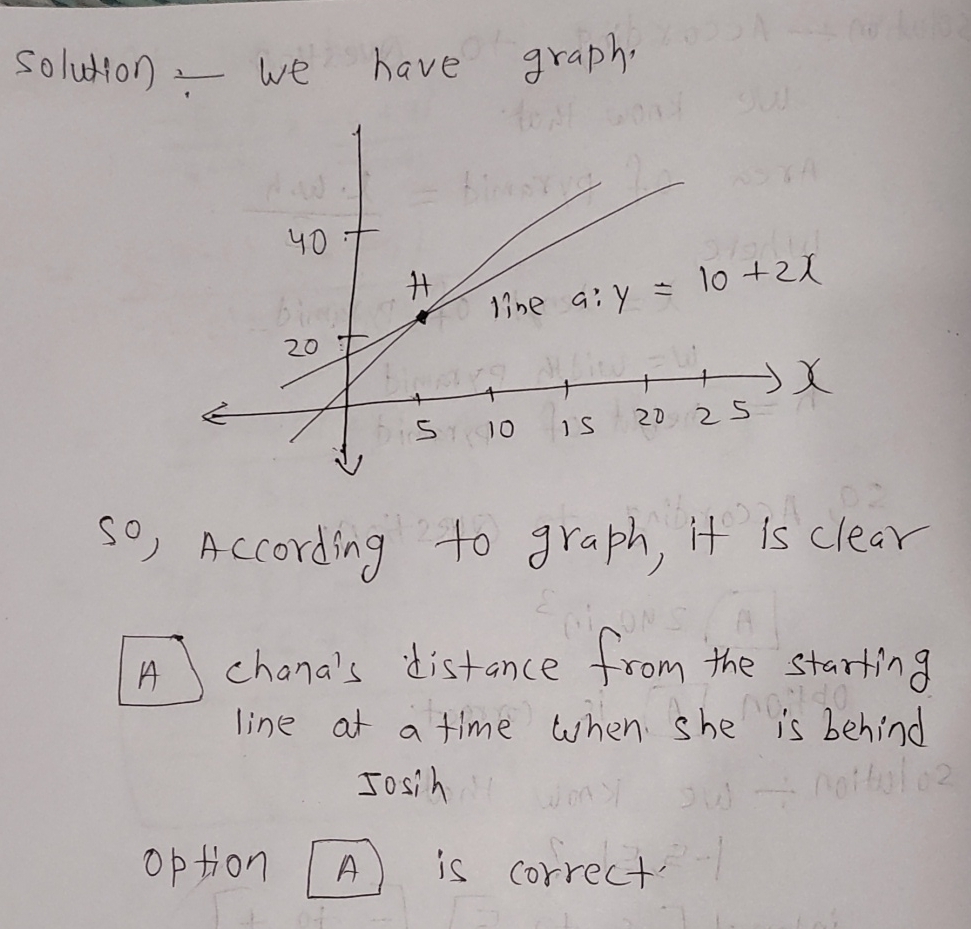 Solution :- we have graph.
40
H
line a: y = 10 + 2x
20
x
5 10 15 20 25
so, According to graph, it is clear
A chana's distance from the starting
line at a time when she is behind
Josih
option A is correct.